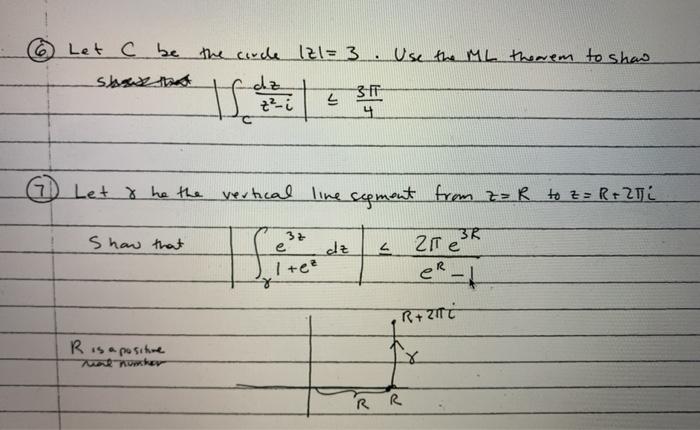 ⑥ Let C be the circle |z| = 3 . Use the ML theorem to show
show that | ∫_C dz / (z² - i) | ≤ 3π / 4
⑦ Let γ be the vertical line segment from z = R to z = R + 2πi
Show that | ∫_γ e^{3z} / (1 + e^z) dz | ≤ 2π e^{3R} / (e^R - 1)
R + 2πi
R is a positive
real number
γ
R R